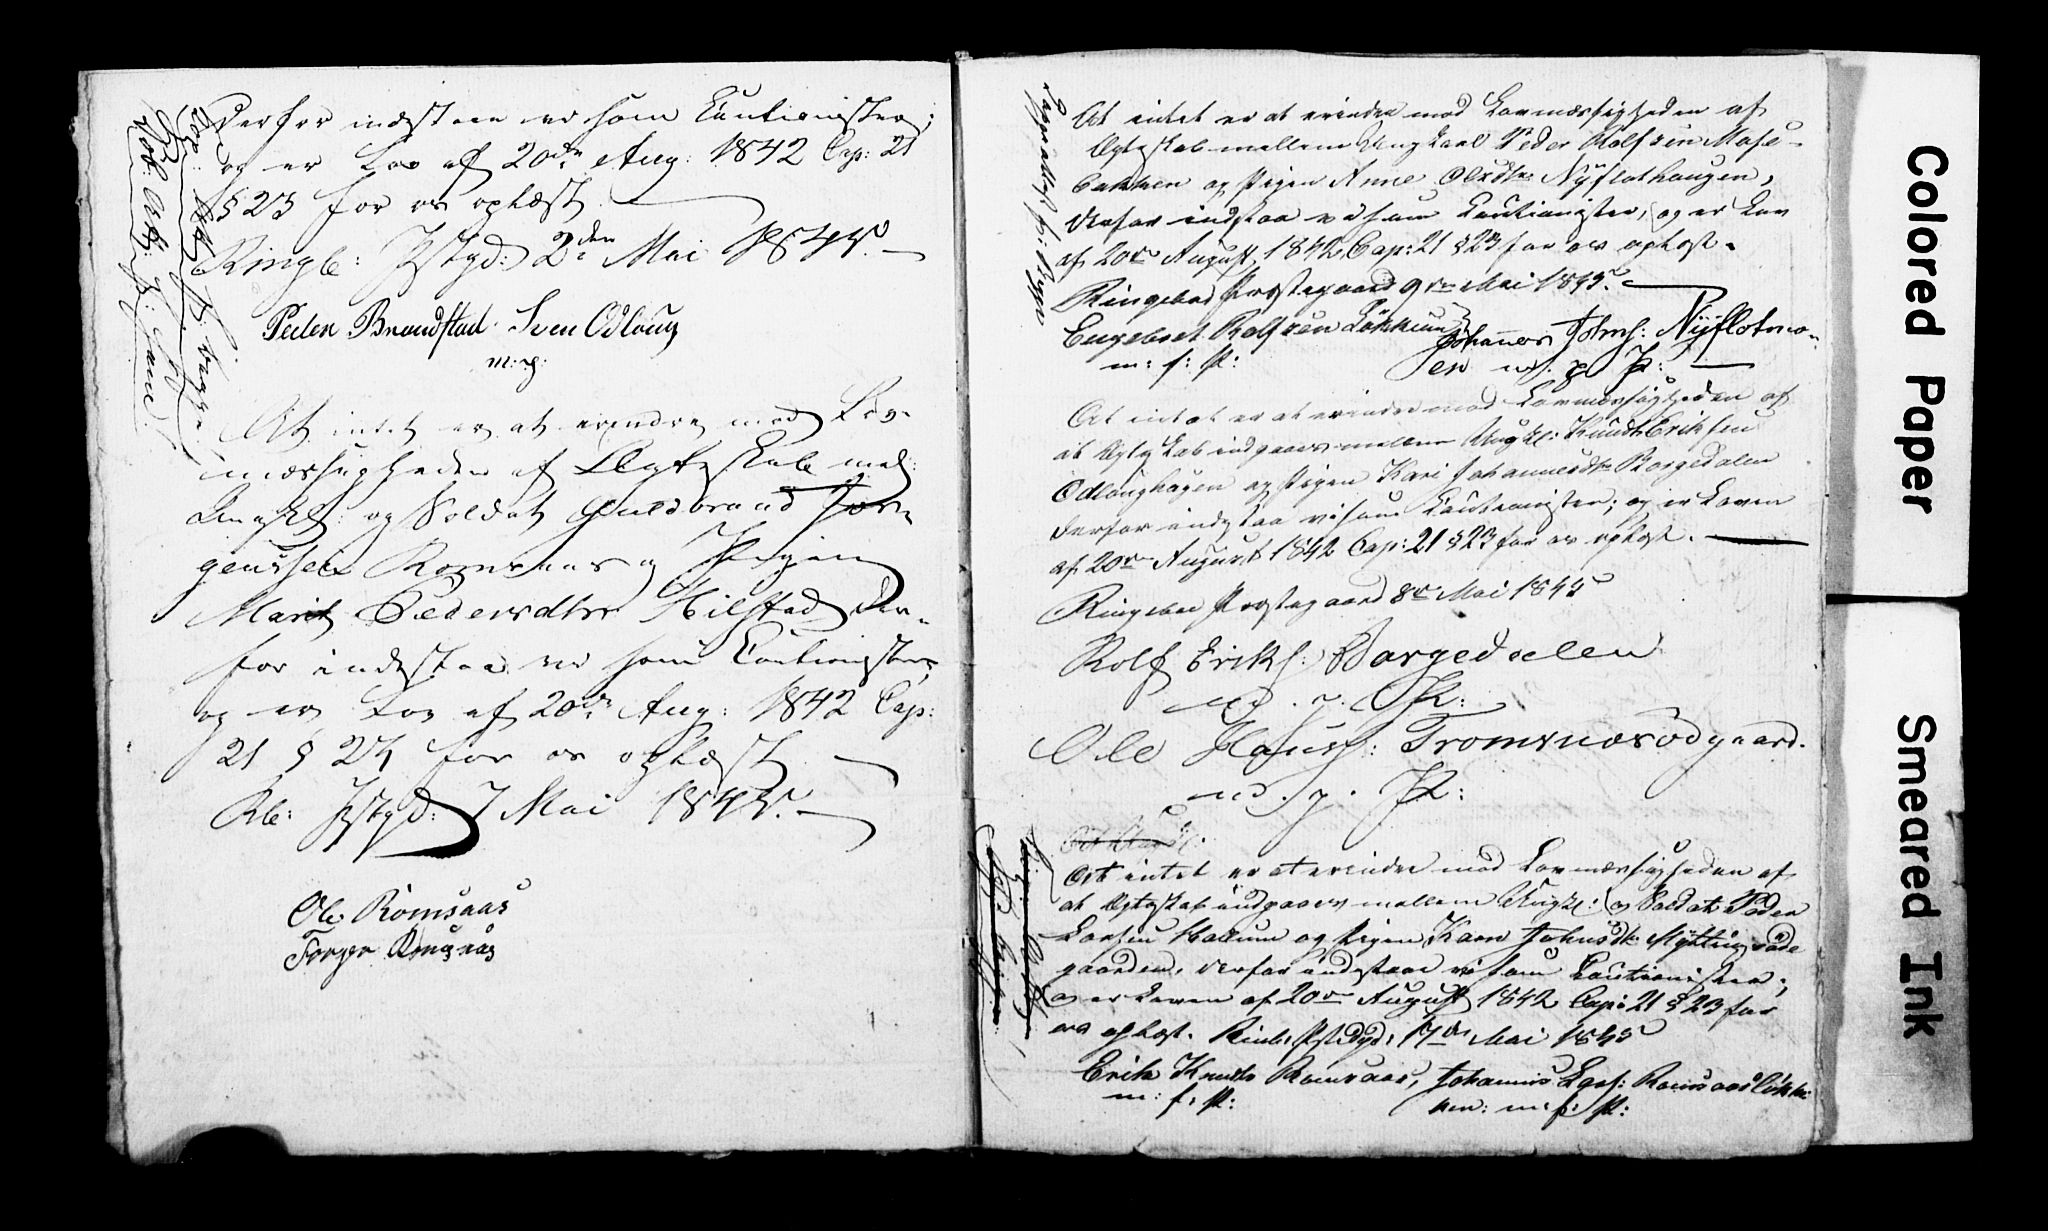 derfor indestaae vi som Cautionister;
og er Lov af 20de Aug: 1842 Cap: 21
§ 23 for os oplæst.
Ringb: Pstgd: 2den Mai 1845.
Peder Brandstad Sven Odloug
m: p:
At intet er at erindre mod Lov-
mæssigheden af Ægteskab mel:
Ungkl: og Soldat Guldbrand Jør-
genssen Romsaas og Pigen
Marit Pedersdtr Hilstad der-
for indestaae vi som Cautionister,
og er Lov af 20de Aug: 1842 Cap:
21 § 23 for os oplæst
Rb: Pstgd: 7 Mai 1845.
Ole Romsaas
Torger Romsaas
At intet er at erindre mod Lovmæssigheden af
Ægteskab mellem Ungkarl Peder Rolfsen Mose-
bakken og Pigen Anne Olesdtr Nyflothaugen,
derfor indstaa vi som Cautionister, og er Lov
af 20de August 1842 Cap: 21 § 23 for os oplæst.
Ringebu Præstegaard 9de Mai 1845.
Engebret Rolfsen Løkken Johannes Johns: Nyflotmo-
m: f: P: en m. p P:
At intet er at erindre mod Lovmæssigheden af
at Ægteskab indgaaes mellem Ungkl: Knudt Eriksen
Odloughagen og Pigen Kari Johannesdtr Borgedalen
derfor indstaa vi som Cautionister; og er Loven
af 20de August 1842 Cap: 21 § 23 for os oplæst.
Ringebu Præstegaard 8de Mai 1845
Rolf Eriks: Borgedalen
m. p. P:
Ole Hans: Tromsnæsødegaard.
m. p. P:
At intet er at erindre mod Lovmæssigheden af
at Ægteskab indgaaes mellem Ungkl: og Soldat Peder
Larsen Hallum og Pigen Karn Johnsdtr Myttingsøde
gaarden, derfor indestaae vi som Cautionister;
og er Loven af 20de August 1842 Cap: 21 § 23 for
os oplæst. Rinb: Pstdgd: 17de Mai 1845
Erik Knuds Romsaas, Johannes Lars: Romsaasløkk:
m: f: P: ken: m: f: P: